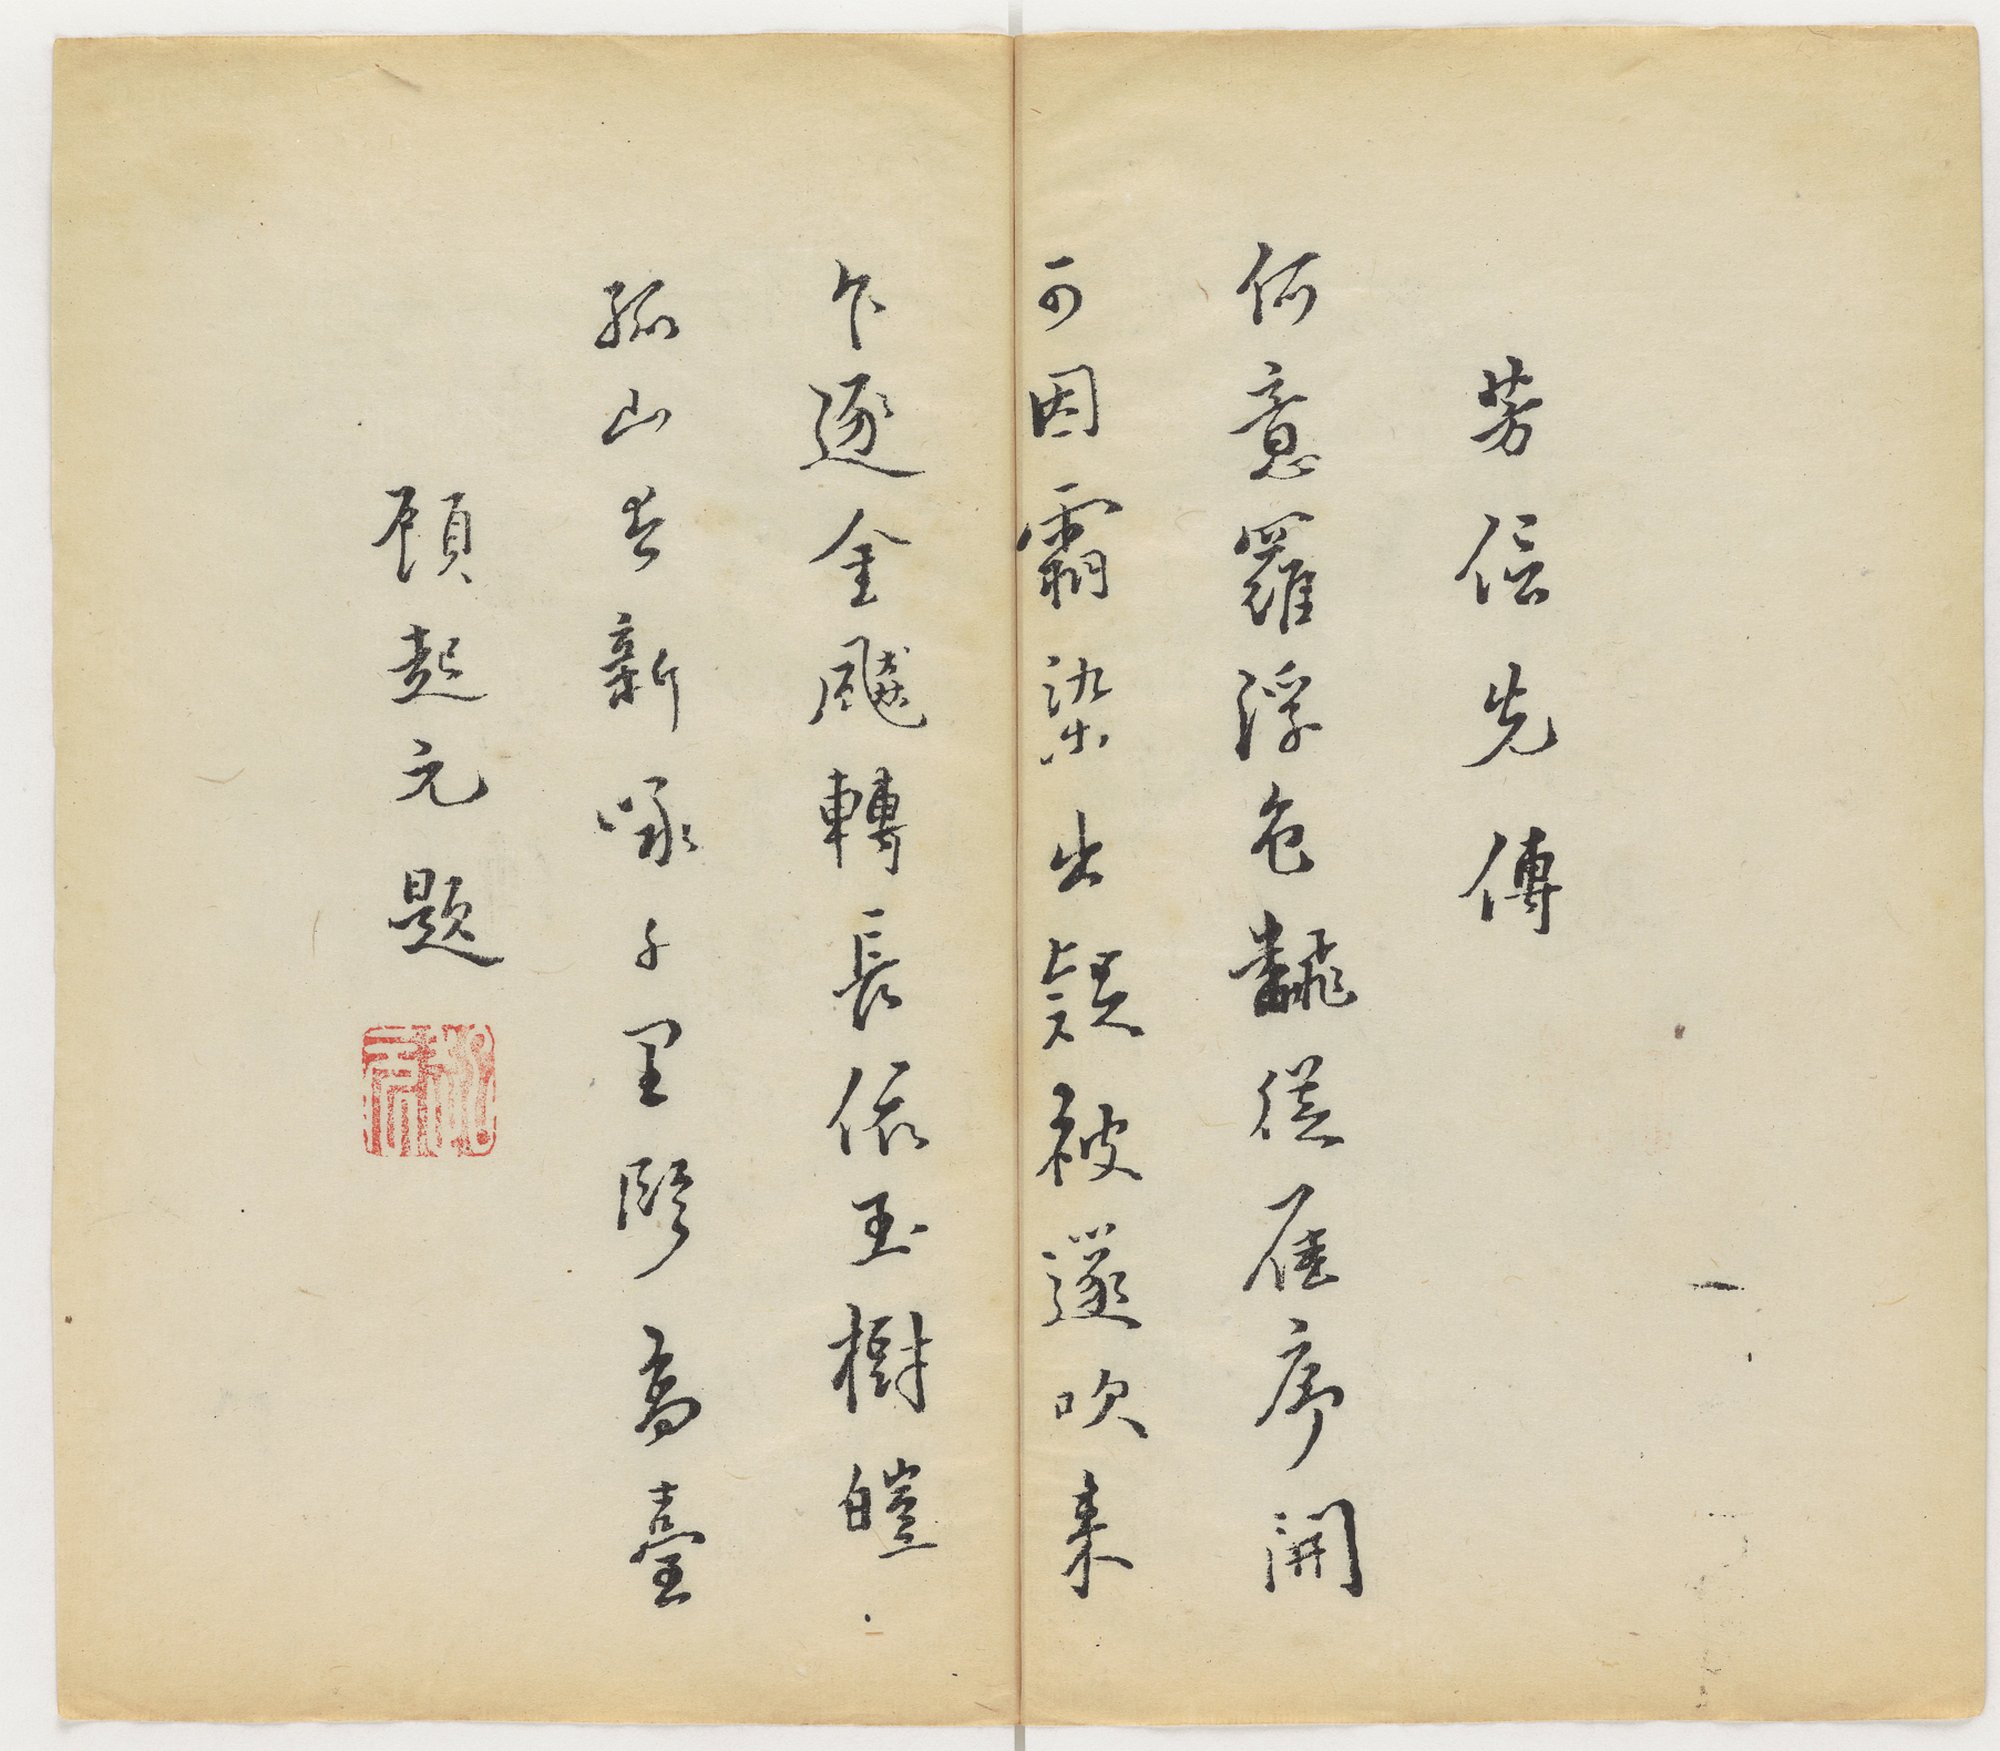 芳信先傳
何意羅浮色飜從雁序開
可因霜染出疑被吹来
乍逐金飈轉長依玉樹皚
孤山新咏千里高臺
顧起元題